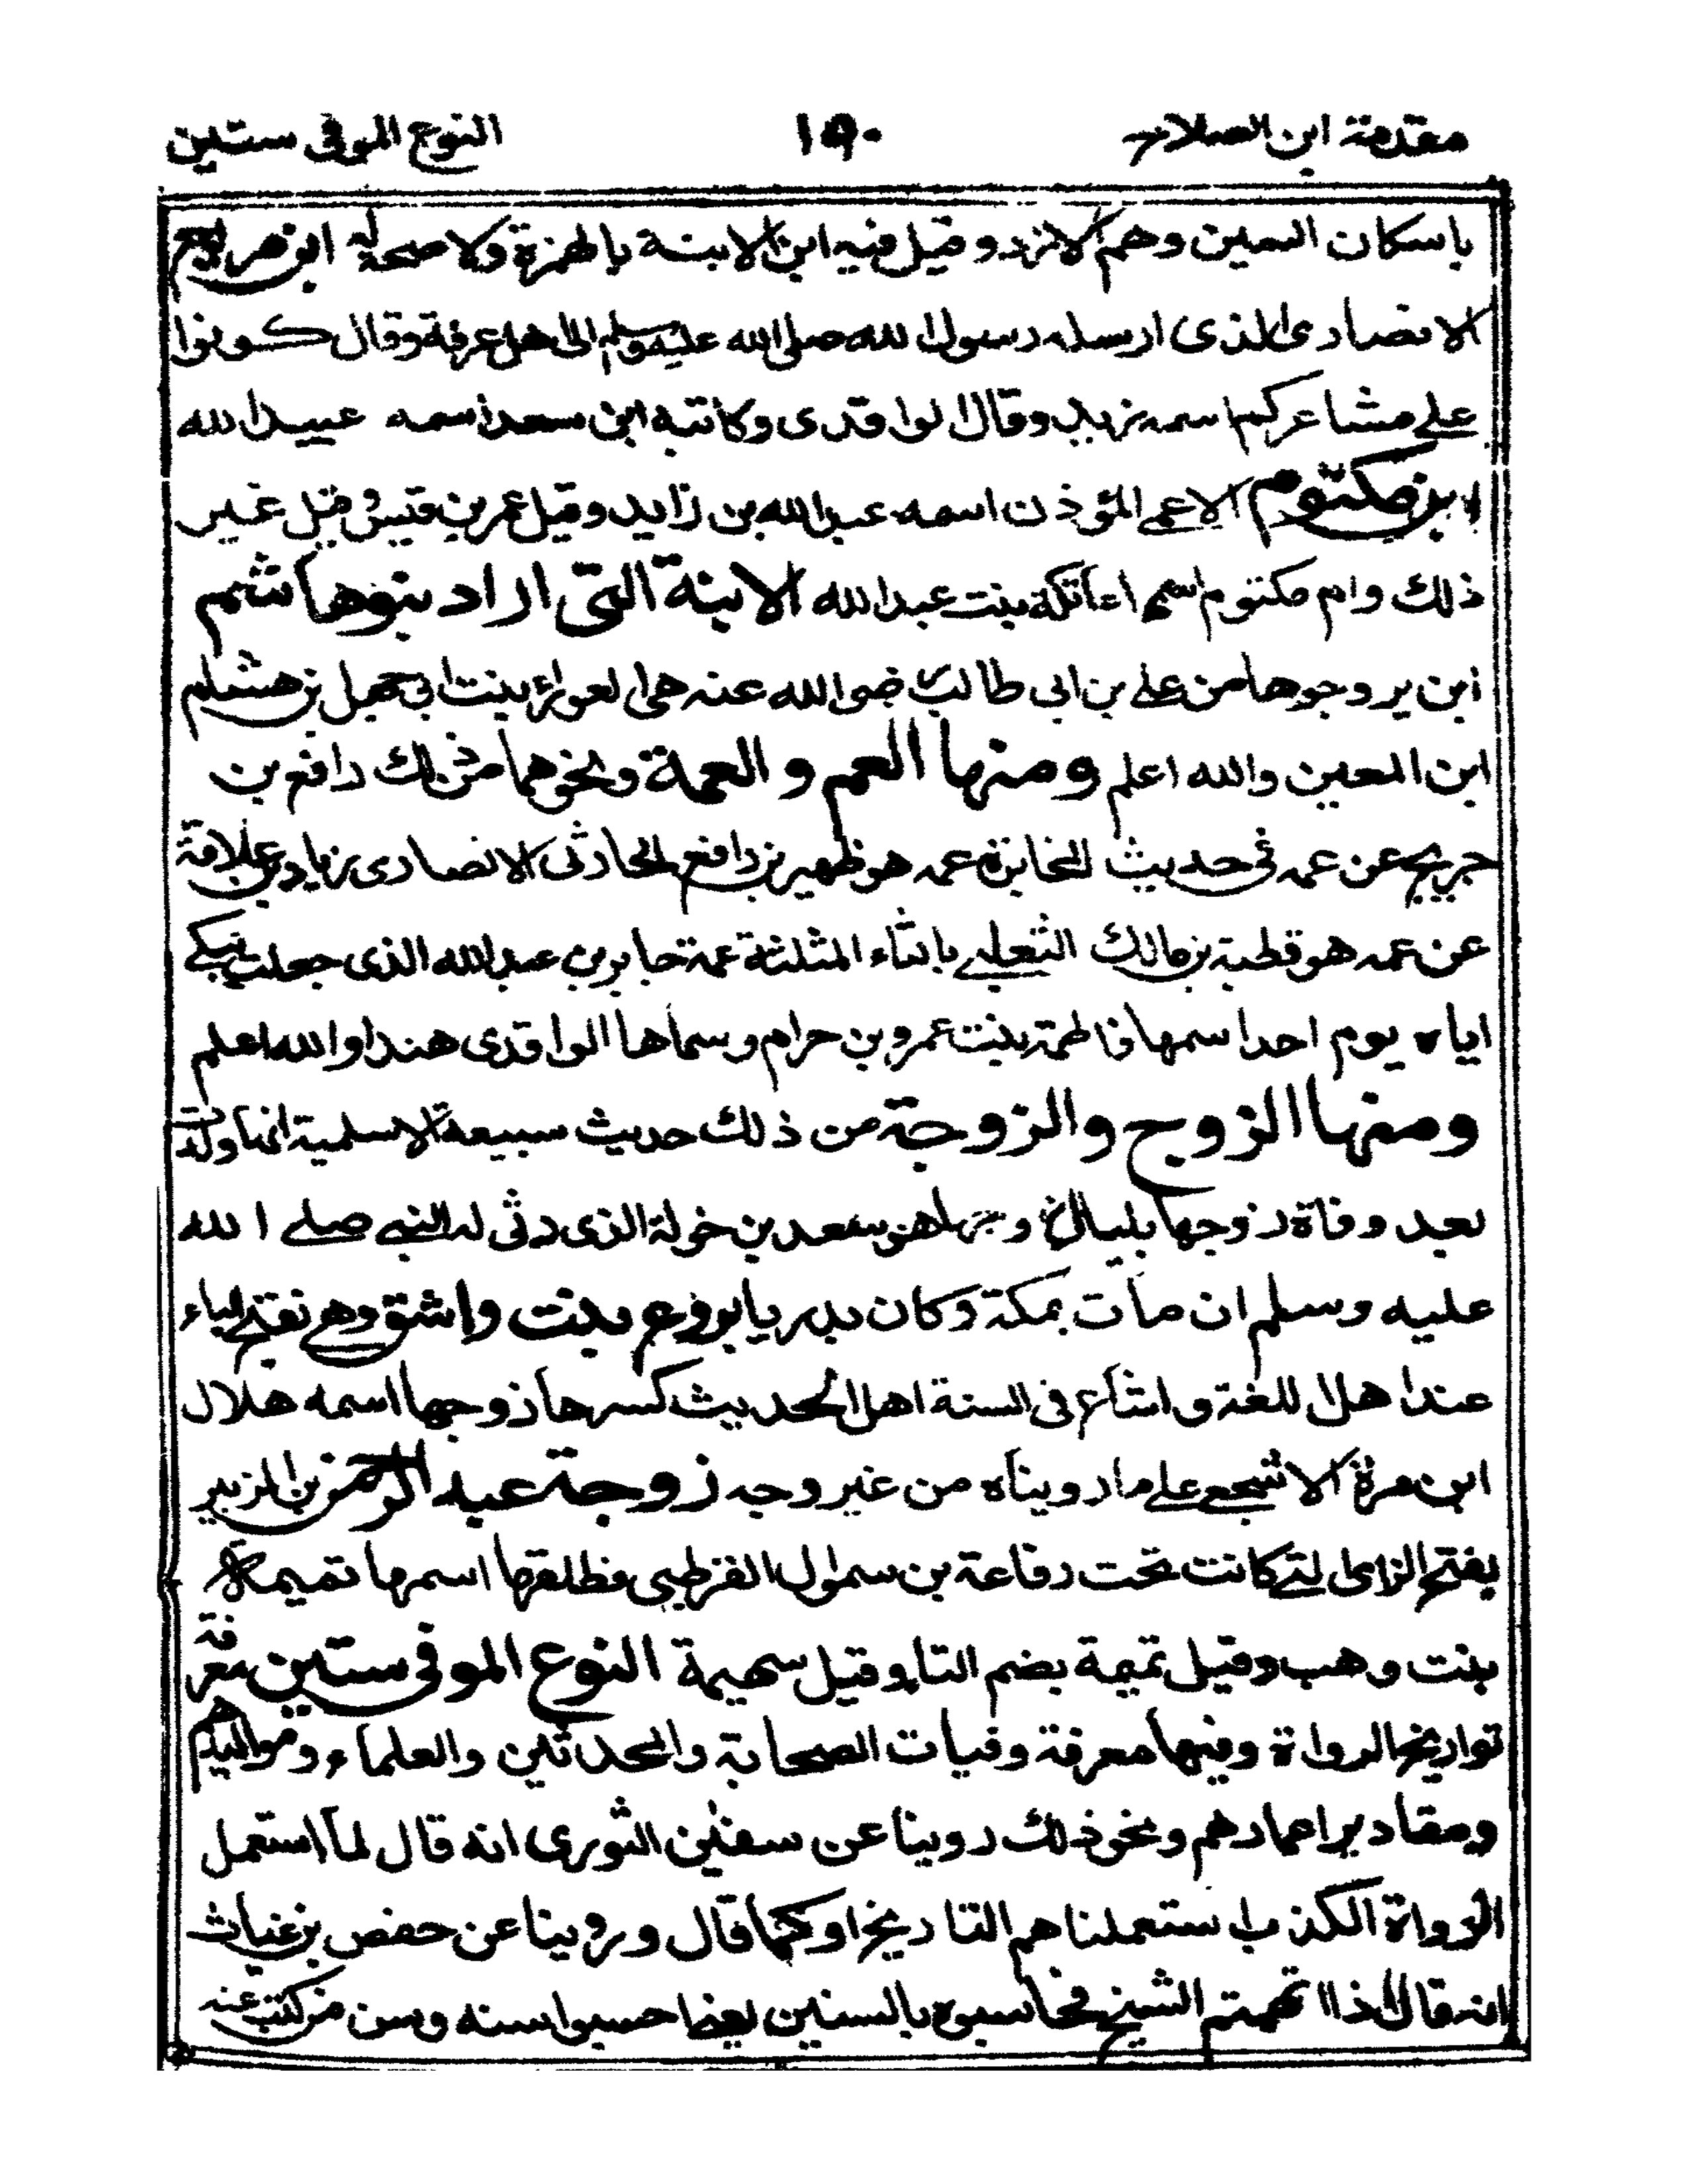 مقدمة ابن الصلاح ١٩٠ النوع الموفى ستين
باسكان السين وهم الازد وقيل فيه ابن الابتة بالهمزة ولا صحة له ابن مربع
الانصارى الذى ارسله رسول الله صلى الله عليه وسلم الى اهل عرفة وقال كونوا
على مشاعركم اسمه زيد وقال الواقدى وكاتبه ابن سعد اسمه عبيد الله
ابن مكتوم الاعمى المؤذن اسمه عبد الله بن زايد وقيل عمر بن قيس وقيل غير
ذلك وام مكتوم اسمها عاتكة بنت عبد الله الابنة التى اراد بنوها شم
ابن يروجوها من على بن ابى طالب رضى الله عنه هى العوراء بنت ابى جهل بن هشام
ابن المعين والله اعلم ومنها العم والعمة ونحوهما من ذلك رافع بن
جريج عن عمه فى حديث المخابزة عمه هو ظهير بن رافع الحارثى الانصارى زياد بن علاقة
عن عمه هو قطبة بن مالك الثعلبى بالثاء المثلثة عمة جابر بن عبد الله الذى جعلت تبكى
اياه يوم احد اسمها فاطمة بنت عمرو بن حرام وسماها الواقدى هندا والله اعلم
ومنها الزوج والزوجة من ذلك حديث سبيعة الاسلمية انها ولدت
بعد وفاة زوجها بليال زوجها هو سعد بن خولة الذى رثى له النبى صلى الله
عليه وسلم ان مات بمكة وكان بدريا بروع بنت واشق وهى بفتح الباء
عند اهل اللغة وشاع فى السنة اهل الحديث كسرها زوجها اسمه هلال
ابن مرة الاشجعى على ما رويناه من غير وجه زوجة عبد الرحمن بن الزبير
بفتح الزاى التى كانت تحت رفاعة بن سموال القرظبى فطلقها اسمها تميمة
بنت وهب وقيل تميمة بضم التاء وقيل سهيمة النوع الموفى ستين معرفة
تواريخ الرواة وفيها معرفة وفيات الصحابة والمحدثين والعلماء ومواليدهم
ومقادير اعمارهم ونحو ذلك روينا عن سفين الثورى انه قال لما استعمل
الرواة الكذب استعملنا هم التاريخ او كما قال وروينا عن حفص بن غياث
انه قال اذا اتهمتم الشيخ فحاسبوه بالسنين يعنى احسبوا سنه وسن من كتب عنه